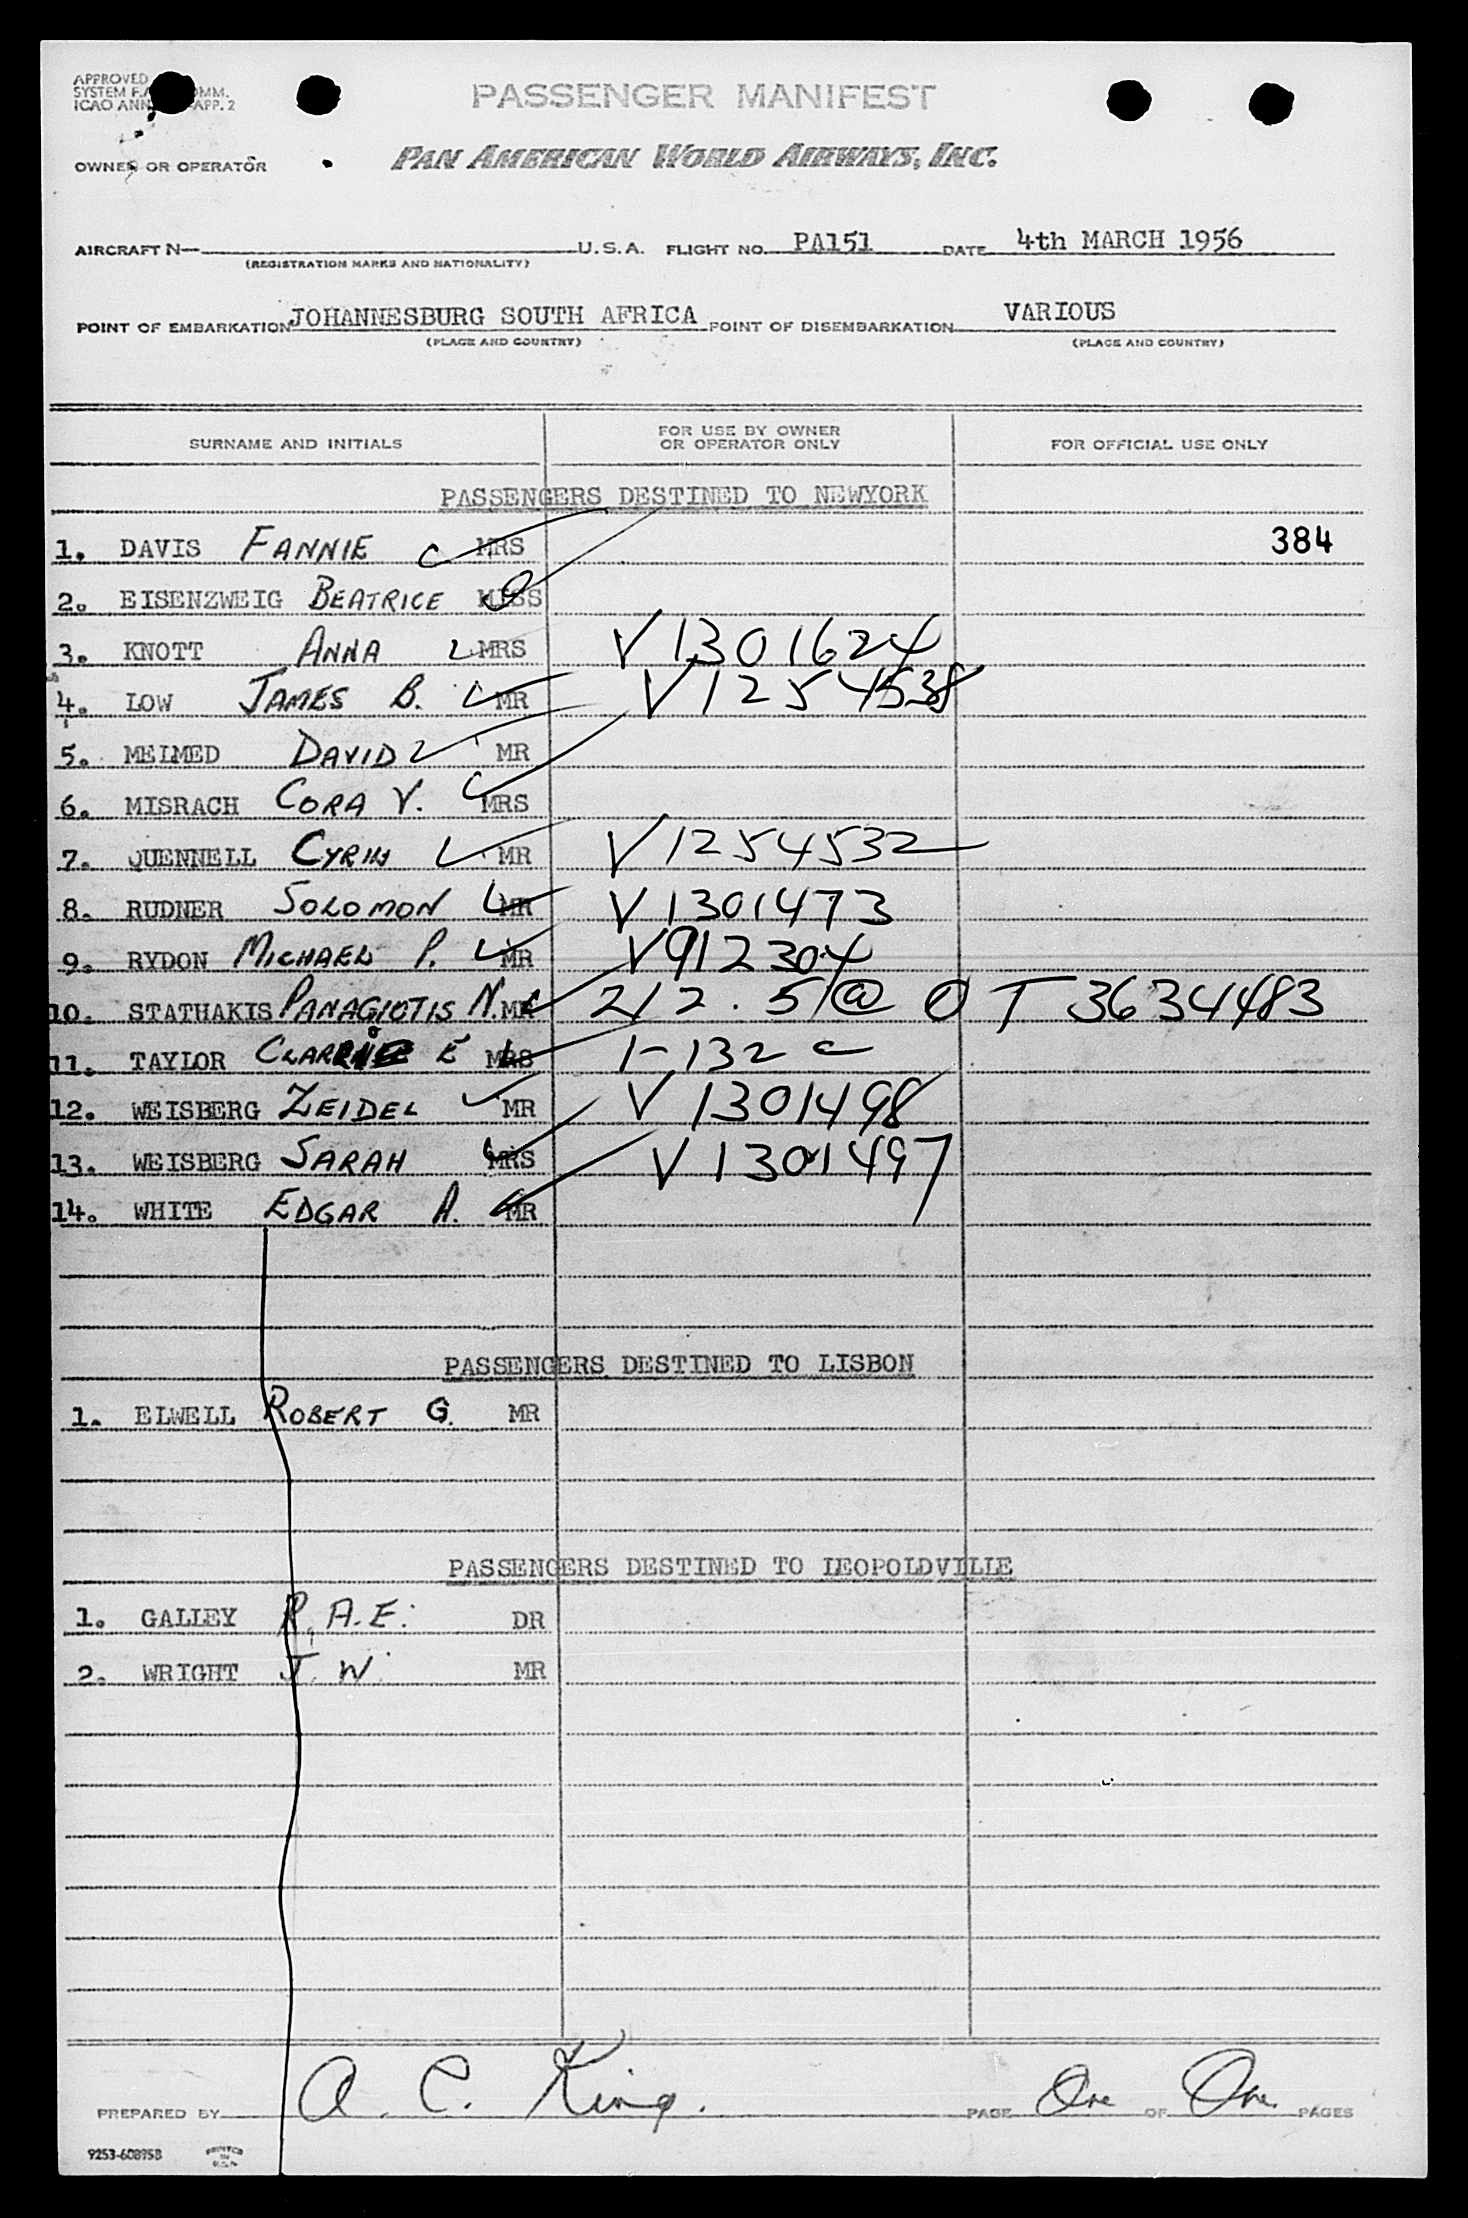 APPROVED
SYSTEM COMM.
ICAO ANN APP. 2
PASSENGER MANIFEST
OWNER OR OPERATOR
PAN AMERICAN WORLD AIRWAYS, INC.
AIRCRAFT N— U.S.A. FLIGHT NO. PA151 DATE 4th MARCH 1956
(REGISTRATION MARKS AND NATIONALITY)
POINT OF EMBARKATION JOHANNESBURG SOUTH AFRICA POINT OF DISEMBARKATION VARIOUS
(PLACE AND COUNTRY) (PLACE AND COUNTRY)
SURNAME AND INITIALS FOR USE BY OWNER OR OPERATOR ONLY FOR OFFICIAL USE ONLY
PASSENGERS DESTINED TO NEWYORK
1. DAVIS FANNIE MRS 384
2. EISENZWEIG BEATRICE MISS
3. KNOTT ANNA MRS V1301624
4. LOW JAMES B. MR V1254538
5. MEIMED DAVID MR
6. MISRACH CORA V. MRS
7. QUENNELL CYRIL MR V1254532
8. RUDNER SOLOMON MR V1301473
9. RYDON MICHAEL P. MR V912304
10. STATHAKIS PANAGIOTIS N. MR 212.5 @ O T 3634483
11. TAYLOR E MRS 1-132 c
12. WEISBERG ZEIDEL MR V1301498
13. WEISBERG SARAH MRS V1301497
14. WHITE EDGAR A. MR
PASSENGERS DESTINED TO LISBON
1. ELWELL ROBERT G. MR
PASSENGERS DESTINED TO LEOPOLDVILLE
1. GALLEY R.A.E. DR
2. WRIGHT J. W. MR
PREPARED BY A. C. King. PAGE One OF One PAGES
9253-60895B PRINTED IN U.S.A.